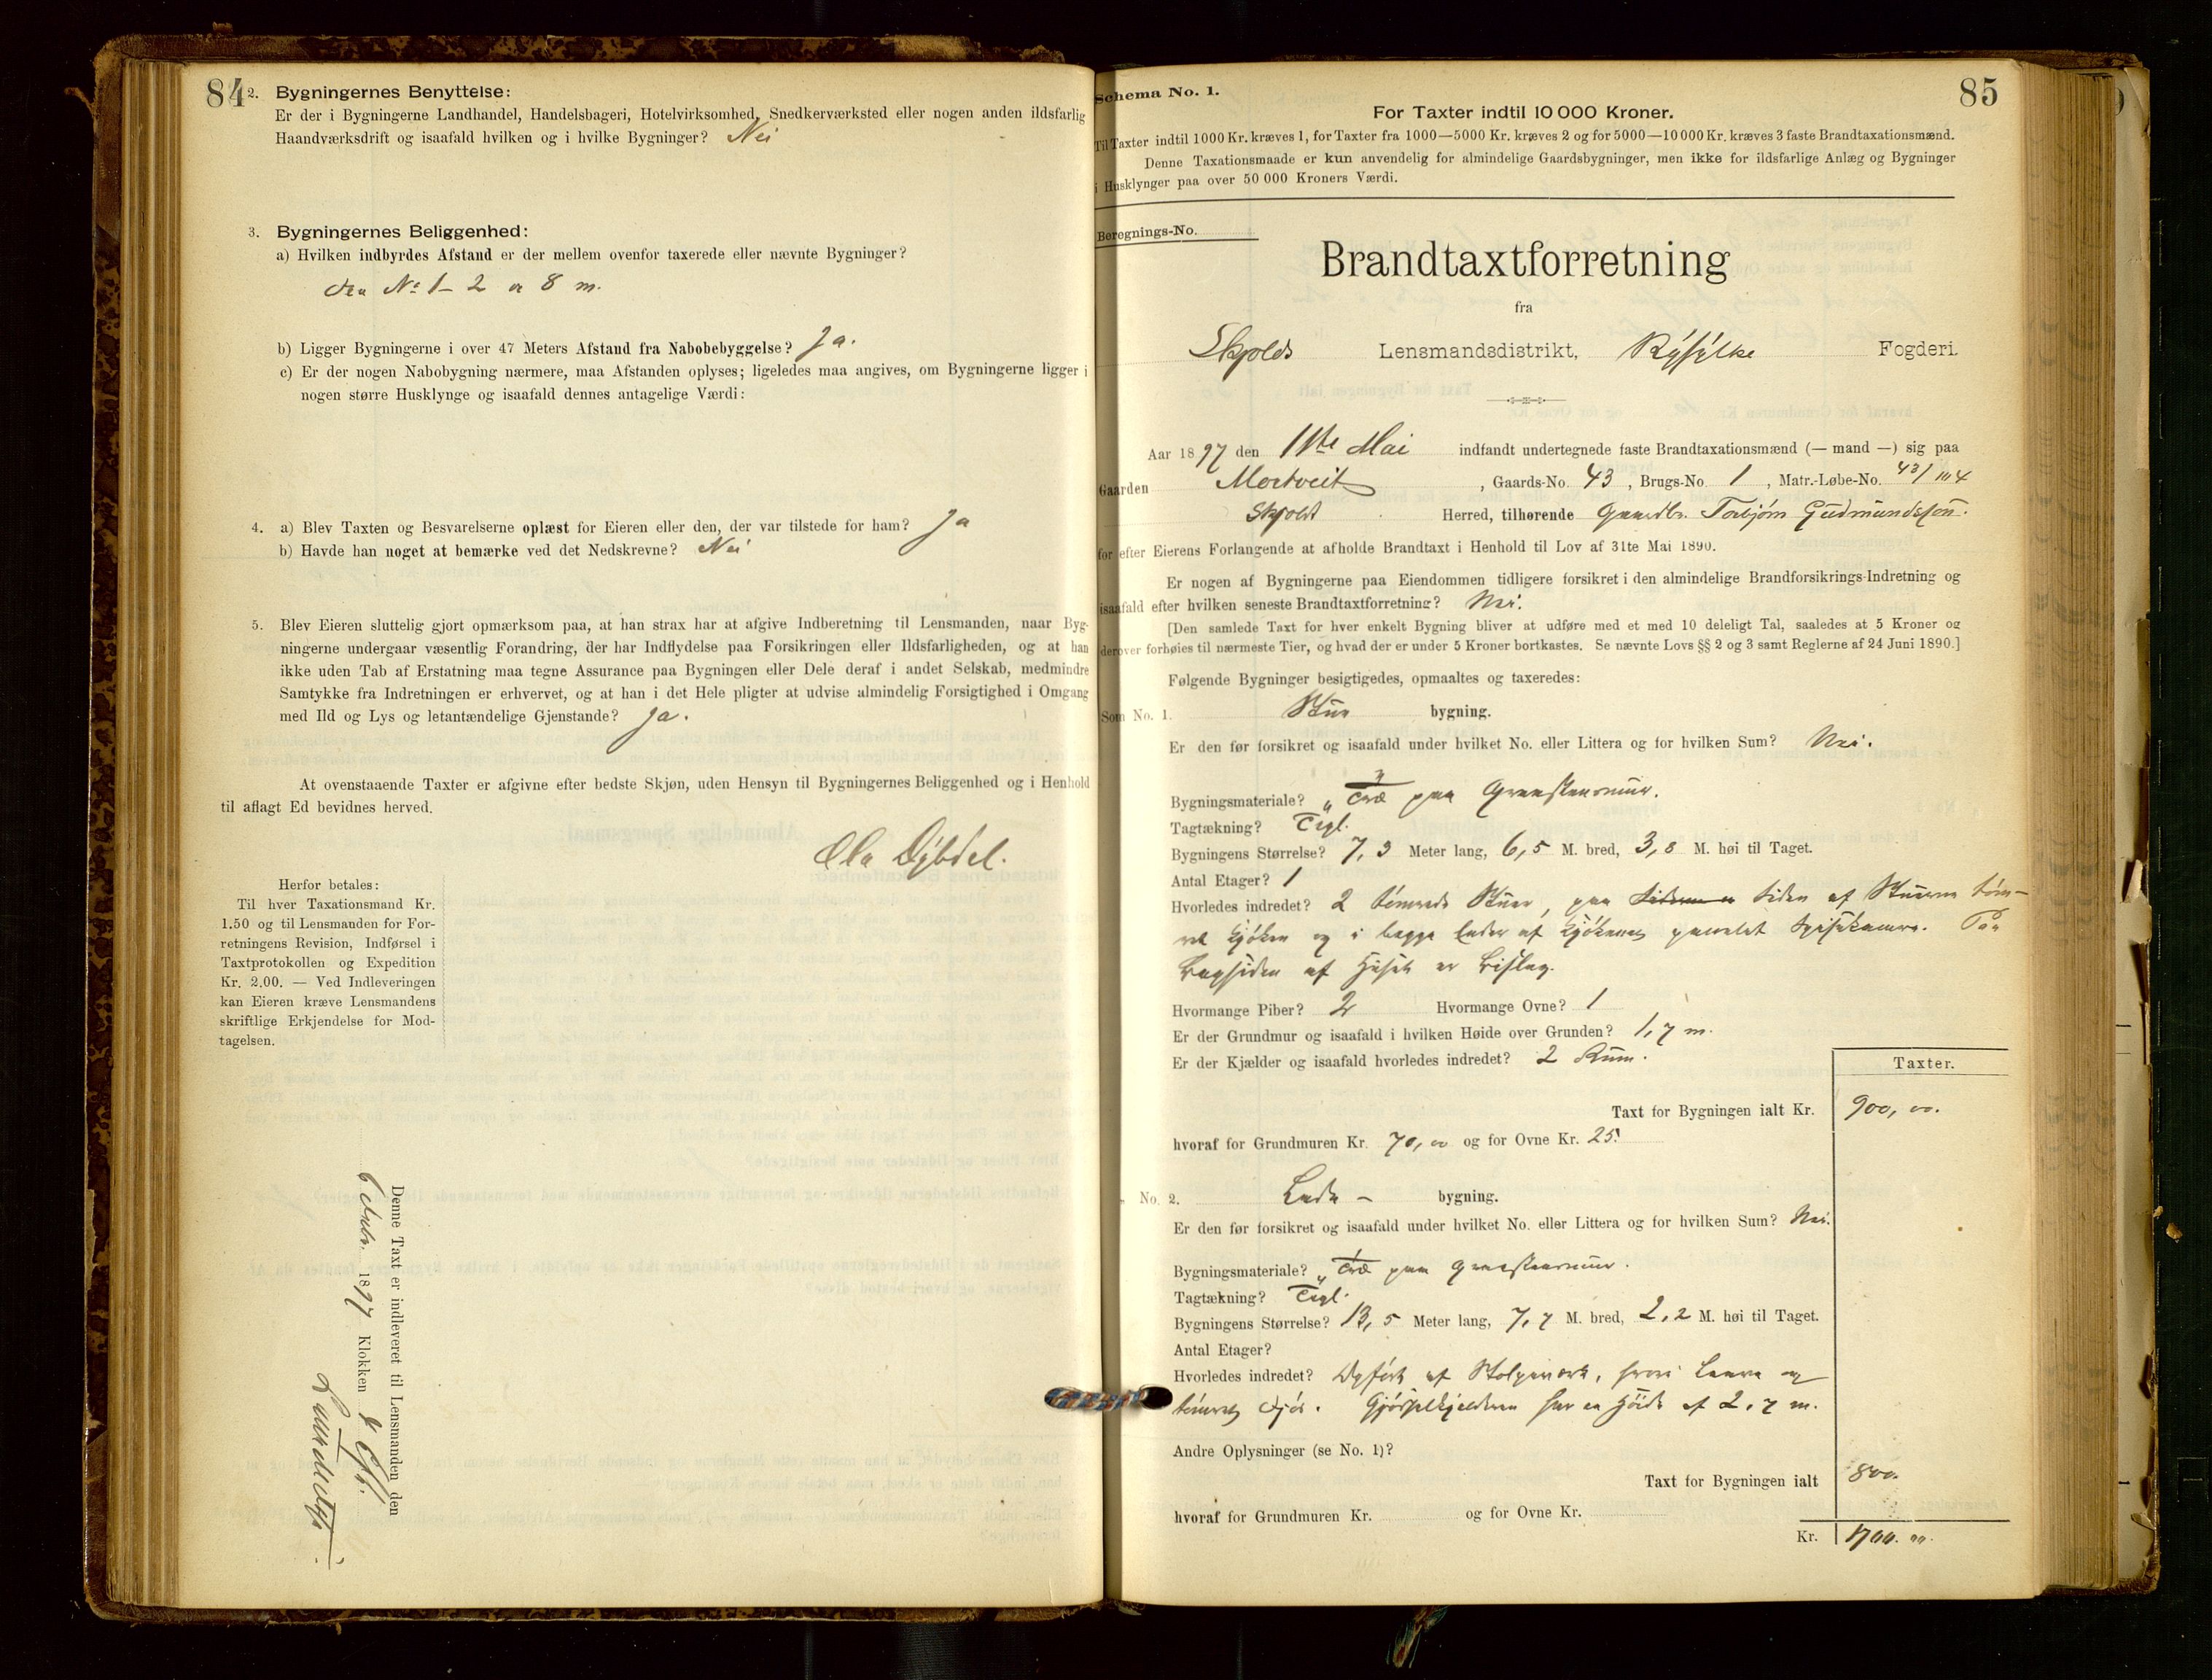 84
2. Bygningernes Benyttelse:
Er der i Bygningerne Landhandel, Handelsbageri, Hotelvirksomhed, Snedkerværksted eller nogen anden ildsfarlig
Haandværksdrift og isaafald hvilken og i hvilke Bygninger? Nei
3. Bygningernes Beliggenhed:
a) Hvilken indbyrdes Afstand er der mellem ovenfor taxerede eller nævnte Bygninger?
No 1 - 2 er 8 m.
b) Ligger Bygningerne i over 47 Meters Afstand fra Nabobebyggelse? Ja.
c) Er der nogen Nabobygning nærmere, maa Afstanden oplyses; ligeledes maa angives, om Bygningerne ligger i
nogen større Husklynge og isaafald dennes antagelige Værdi:
4. a) Blev Taxten og Besvarelserne oplæst for Eieren eller den, der var tilstede for ham? Ja
b) Havde han noget at bemærke ved det Nedskrevne? Nei
5. Blev Eieren sluttelig gjort opmærksom paa, at han strax har at afgive Indberetning til Lensmanden, naar Byg-
ningerne undergaar væsentlig Forandring, der har Indflydelse paa Forsikringen eller Ildsfarligheden, og at han
ikke uden Tab af Erstatning maa tegne Assurance paa Bygningen eller Dele deraf i andet Selskab, medmindre
Samtykke fra Indretningen er erhvervet, og at han i det Hele pligter at udvise almindelig Forsigtighed i Omgang
med Ild og Lys og letantændelige Gjenstande? Ja.
At ovenstaaende Taxter er afgivne efter bedste Skjøn, uden Hensyn til Bygningernes Beliggenhed og i Henhold
til aflagt Ed bevidnes herved.
Ola Dybdal.
Herfor betales:
Til hver Taxationsmand Kr.
1.50 og til Lensmanden for For-
retningens Revision, Indførsel i
Taxtprotokollen og Expedition
Kr. 2.00. — Ved Indleveringen
kan Eieren kræve Lensmandens
skriftlige Erkjendelse for Mod-
tagelsen.
Denne Taxt er indleveret til Lensmanden den
6 1897 Klokken
85
Schema No. 1.
For Taxter indtil 10 000 Kroner.
Til Taxter indtil 1000 Kr. kræves 1, for Taxter fra 1000—5000 Kr. kræves 2 og for 5000—10 000 Kr. kræves 3 faste Brandtaxationsmænd.
Denne Taxationsmaade er kun anvendelig for almindelige Gaardsbygninger, men ikke for ildsfarlige Anlæg og Bygninger
i Husklynger paa over 50 000 Kroners Værdi.
Beregnings-No.
Brandtaxtforretning
fra
Skjolds Lensmandsdistrikt, Ryfylke Fogderi.
Aar 1897 den 11te Mai indfandt undertegnede faste Brandtaxationsmænd (— mand —) sig paa
Gaarden Mortveit, Gaards-No. 43, Brugs-No. 1, Matr.-Løbe-No. 43/
Skjold Herred, tilhørende Gaardbr. Torbjørn Gudmundsson.
for efter Eierens Forlangende at afholde Brandtaxt i Henhold til Lov af 31te Mai 1890.
Er nogen af Bygningerne paa Eiendommen tidligere forsikret i den almindelige Brandforsikrings-Indretning og
isaafald efter hvilken seneste Brandtaxtforretning? Nei.
[Den samlede Taxt for hver enkelt Bygning bliver at udføre med et med 10 deleligt Tal, saaledes at 5 Kroner og
derover forhøies til nærmeste Tier, og hvad der er under 5 Kroner bortkastes. Se nævnte Lovs §§ 2 og 3 samt Reglerne af 24 Juni 1890.]
Følgende Bygninger besigtigedes, opmaaltes og taxeredes:
Som No. 1. Stue bygning.
Er den før forsikret og isaafald under hvilket No. eller Littera og for hvilken Sum? Nei.
Bygningsmateriale? Træ paa Graastensmur.
Tagtækning? Tegl.
Bygningens Størrelse? 7,3 Meter lang, 6,5 M. bred, 3,8 M. høi til Taget.
Antal Etager? 1
Hvorledes indredet? 2 tømrede Stuer, paa Siden af Stuerne tøm-
ret Kjøken og i begge Ender af Kjøkenet panelet Spisekamre. Paa
Bagsiden af Huset er Bislag.
Hvormange Piber? 2 Hvormange Ovne? 1
Er der Grundmur og isaafald i hvilken Høide over Grunden? 1,7 m.
Er der Kjælder og isaafald hvorledes indredet? 2 Rum.
Taxter.
Taxt for Bygningen ialt Kr. 900, 00.
hvoraf for Grundmuren Kr. 70,00 og for Ovne Kr. 25.
" No. 2. Lade - bygning.
Er den før forsikret og isaafald under hvilket No. eller Littera og for hvilken Sum? Nei.
Bygningsmateriale? Træ paa Graastensmur.
Tagtækning? Tegl.
Bygningens Størrelse? 13,5 Meter lang, 7,7 M. bred, 2,2 M. høi til Taget.
Antal Etager?
Hvorledes indredet? Opført af Stolpeverk, hvori Laave og
tømret Fjøs. Gjødselkjelderen har en Høide af 2,7 m.
Andre Oplysninger (se No. 1)?
Taxt for Bygningen ialt 800.
hvoraf for Grundmuren Kr. og for Ovne Kr.
Kr. 1700. 00.